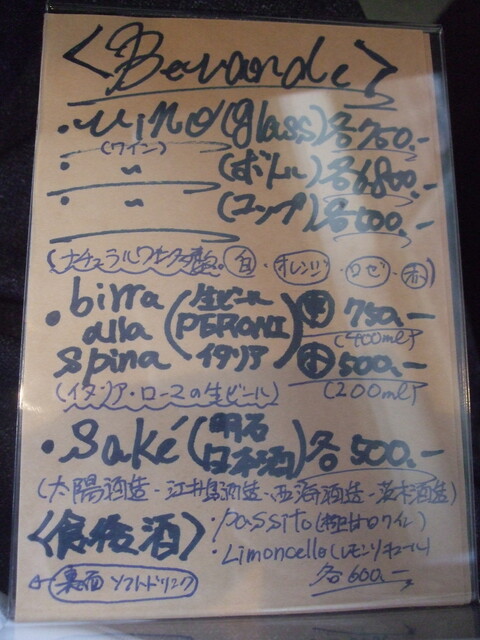 <Bevande>
・vino (glass) 各750.-
(ワイン)
・〃 (ボトル) 各6,800.-
・〃 (コップ) 各500.-
(ナチュラルワイン 白・オレンジ・ロゼ・赤)
・birra alla spina (生ビール PERONI イタリア) 中 750.-
(400ml)
小 500.-
(200ml)
(イタリア・ローマの生ビール)
・Saké (明石日本酒) 各500.-
(太陽酒造・江井島酒造・西海酒造・茨木酒造)
<食後酒> ・passito (極甘口ワイン)
・Limoncello (レモンリキュール)
各600.-
← 裏面 ソフトドリンク